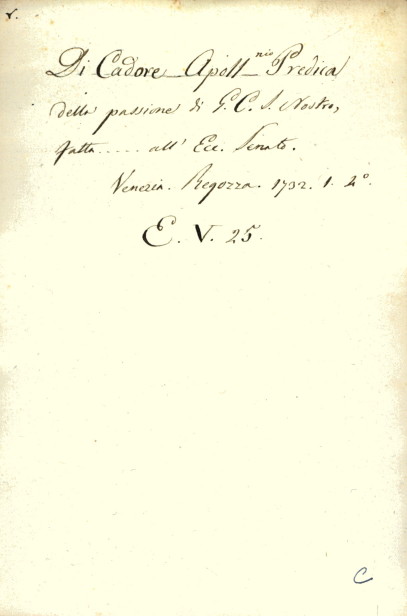 r.
Di Cadore Apoll.nio Predica
della passione di G. C. S. Nostro,
fatta ..... all' Ecc. Senato.
Venezia. Regozza. 1732. 1. 4°.
E. V. 25.
C